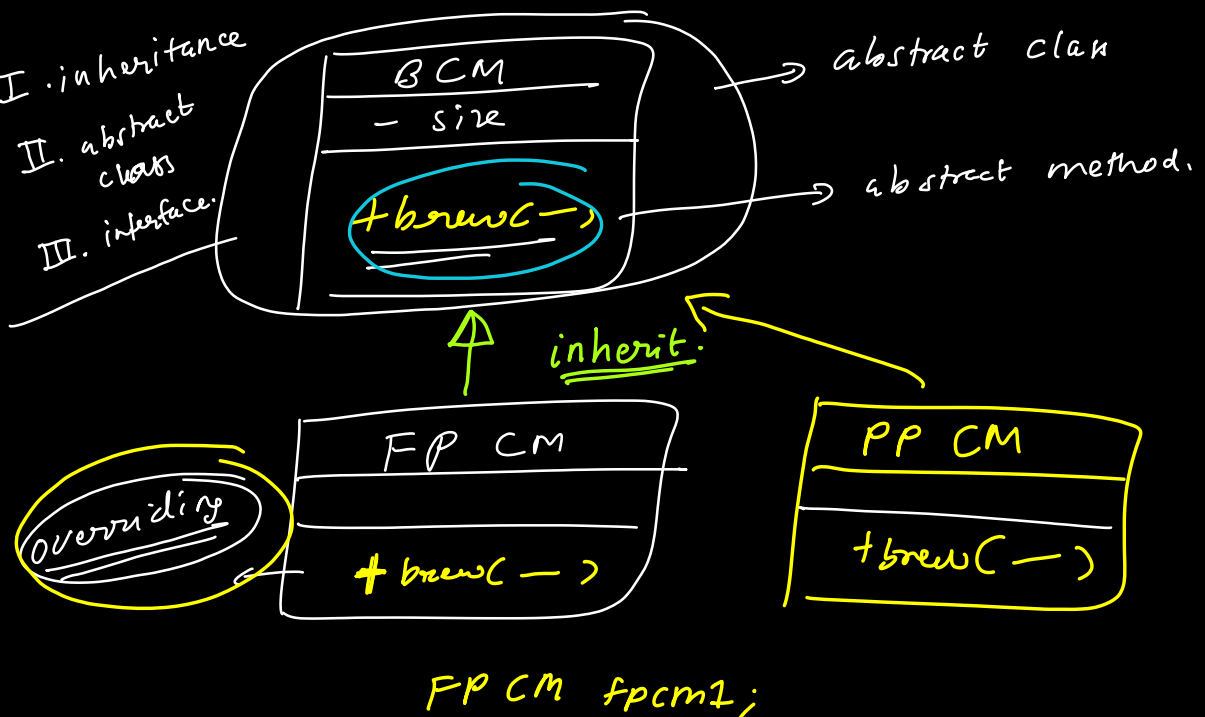 I. inheritance
II. abstract
class
III. interface.
BCM
- size
+brew(—)
abstract class
abstract method.
inherit.
FP CM
+ brew( — )
overriding
PP CM
+brew( — )
FP CM fpcm1;